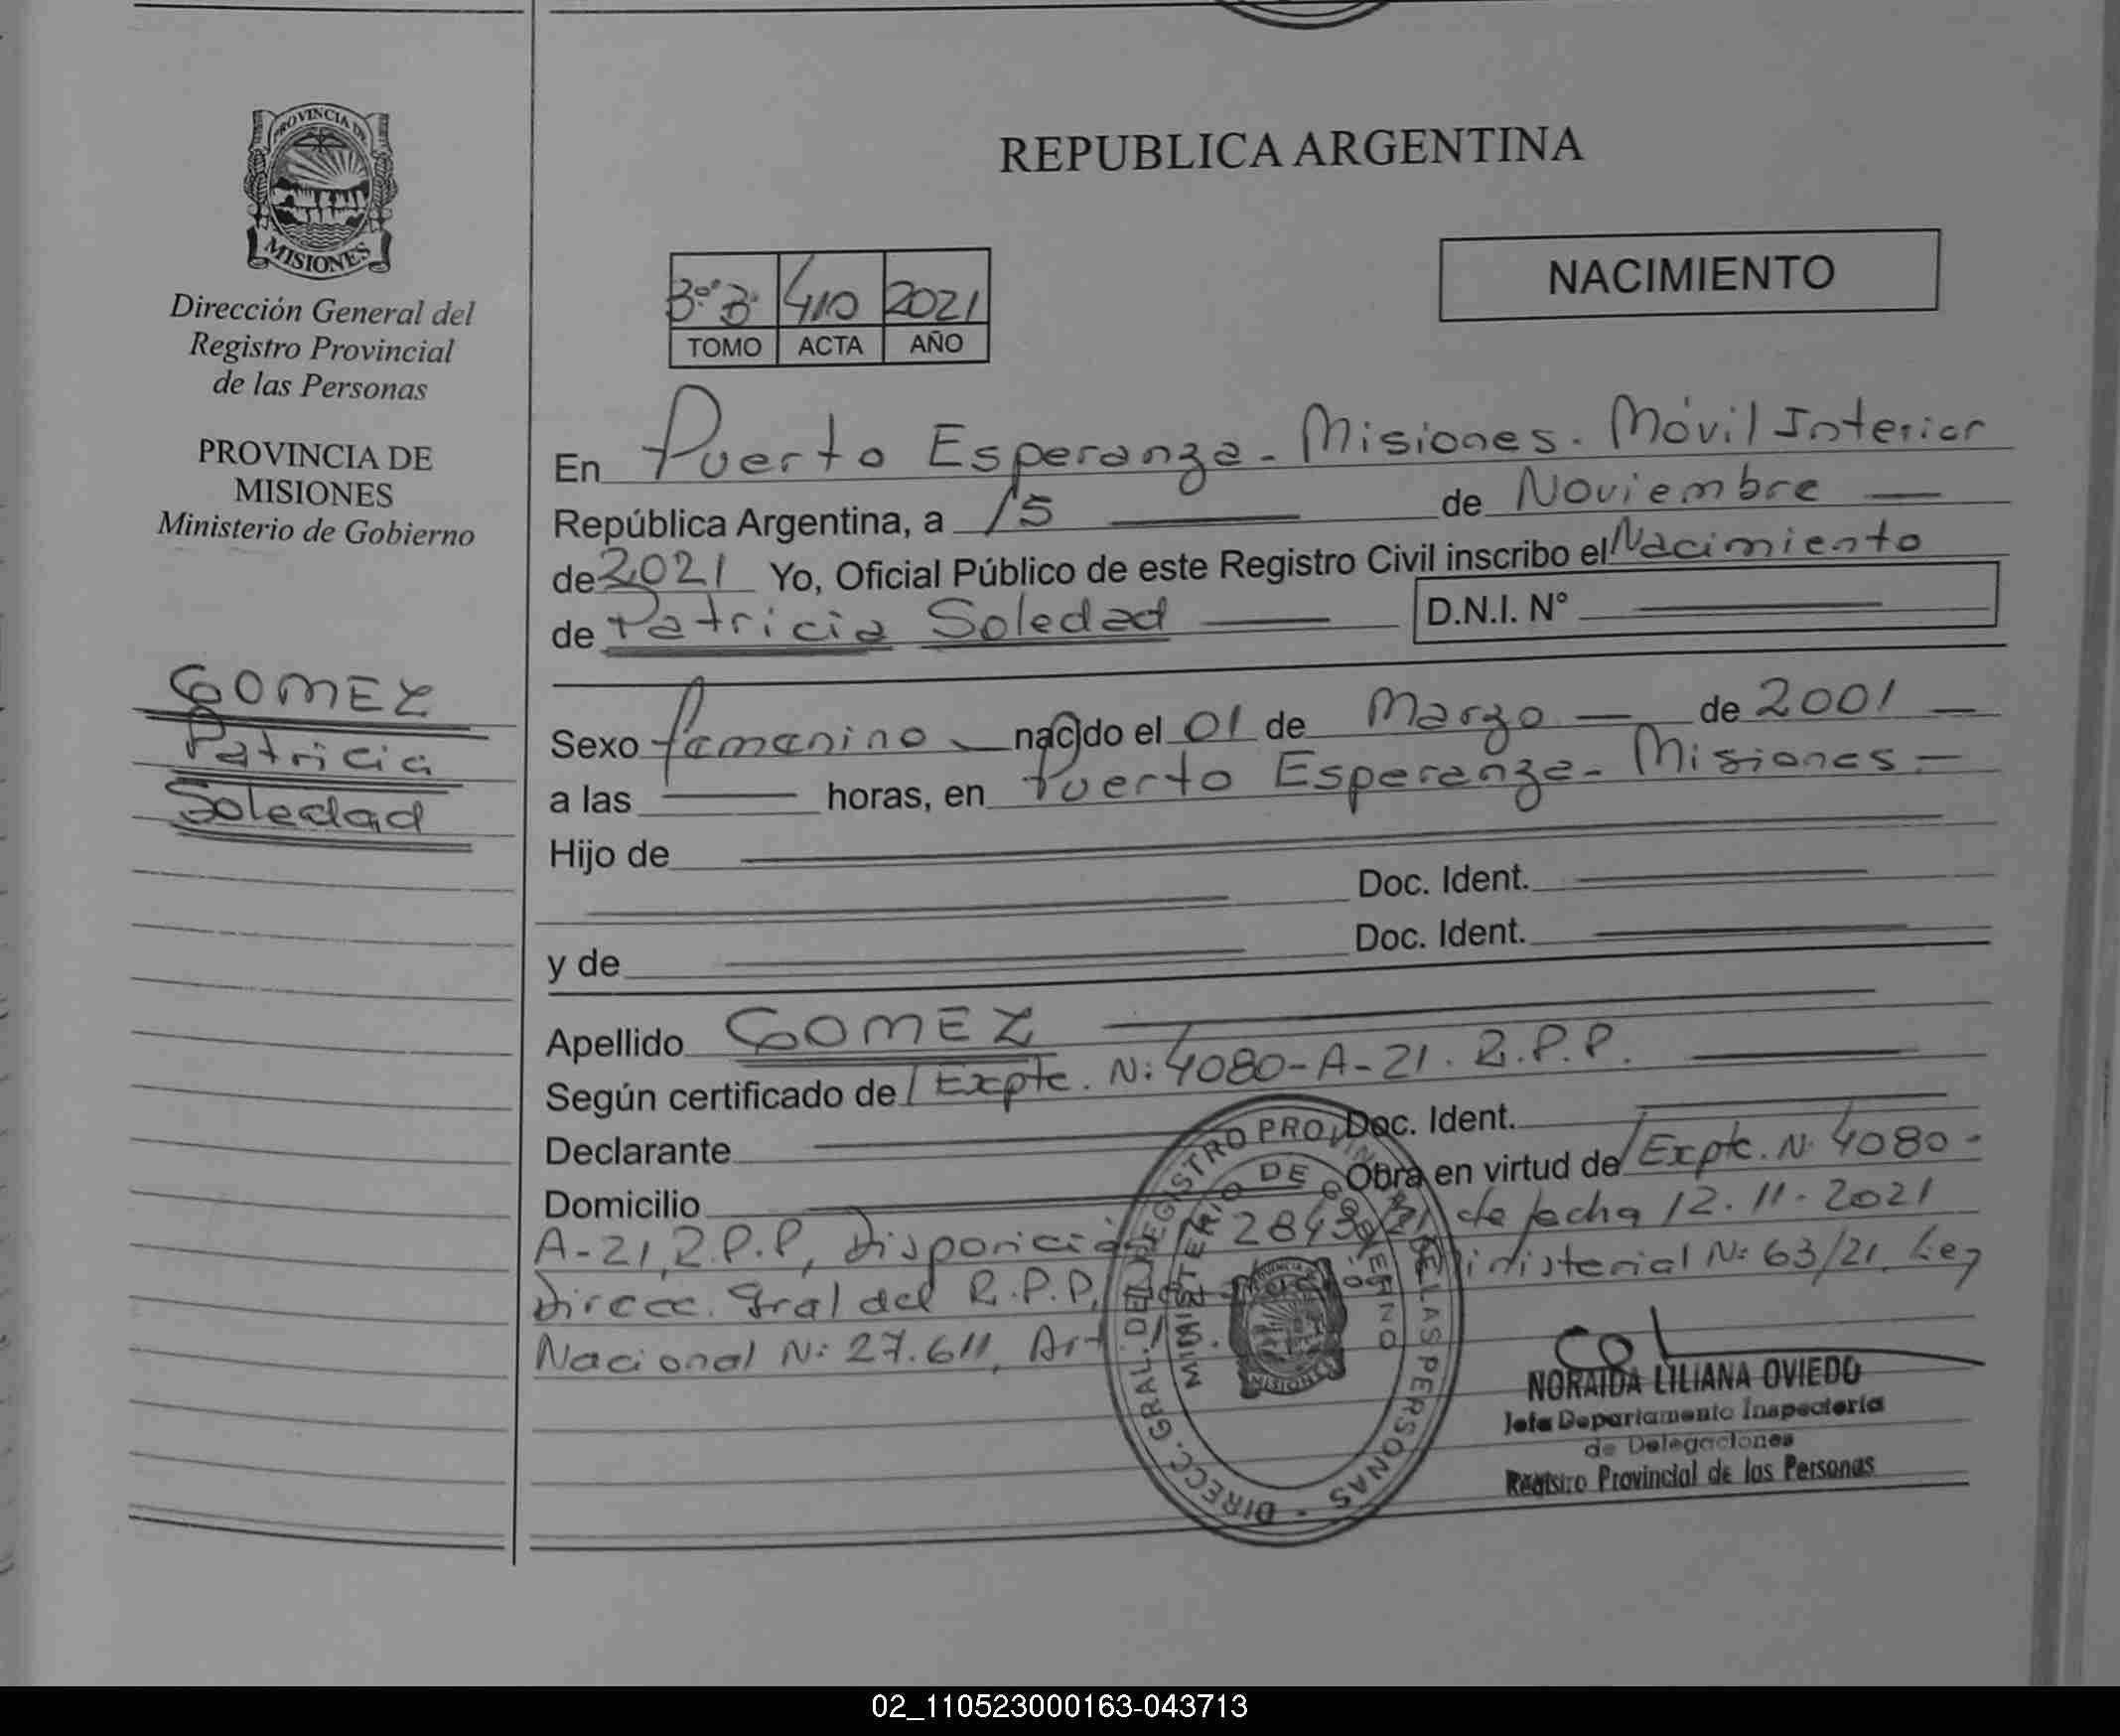 REPUBLICA ARGENTINA
PROVINCIA DE
MISIONES
Dirección General del
Registro Provincial
de las Personas
PROVINCIA DE
MISIONES
Ministerio de Gobierno
GOMEZ
Patricia
Soledad
410 2021
TOMO ACTA AÑO
NACIMIENTO
En Puerto Esperanza - Misiones. Móvil Interior
República Argentina, a 15 de Noviembre
de 2021 Yo, Oficial Público de este Registro Civil inscribo el Nacimiento
de Patricia Soledad D.N.I. N°
Sexo femenino nacido el 01 de Marzo de 2001
a las horas, en Puerto Esperanza - Misiones -
Hijo de
Doc. Ident.
y de Doc. Ident.
Apellido GOMEZ
Según certificado de Expte. N: 4080-A-21. R.P.P.
Declarante Doc. Ident.
Domicilio Obra en virtud de Expte. N. 4080-
A-21, R.P.P, Disposición de fecha 12.11.2021
Direcc. Gral del R.P.P, Ministerial N: 63/21, Ley
Nacional N: 27.611, Art
DIRECC. GRAL. DEL REGISTRO PROVINCIAL DE LAS PERSONAS -
MINISTERIO DE GOBIERNO
MISIONES
NORAIDA LILIANA OVIEDO
Jefa Departamento Inspectoría
de Delegaciones
Registro Provincial de las Personas
02_110523000163-043713